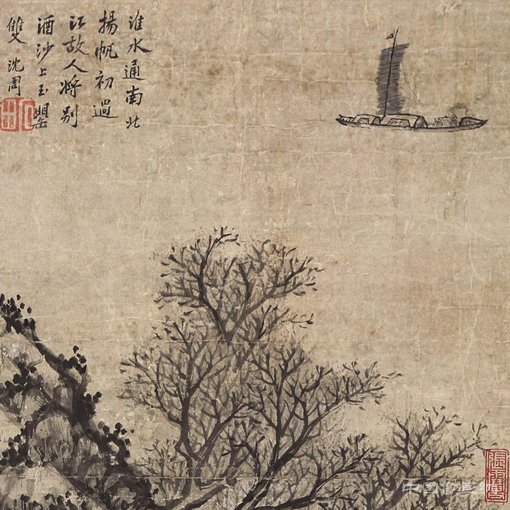 淮水通南北
揚帆初過
江故人將別
酒沙上玉罌
雙沈周